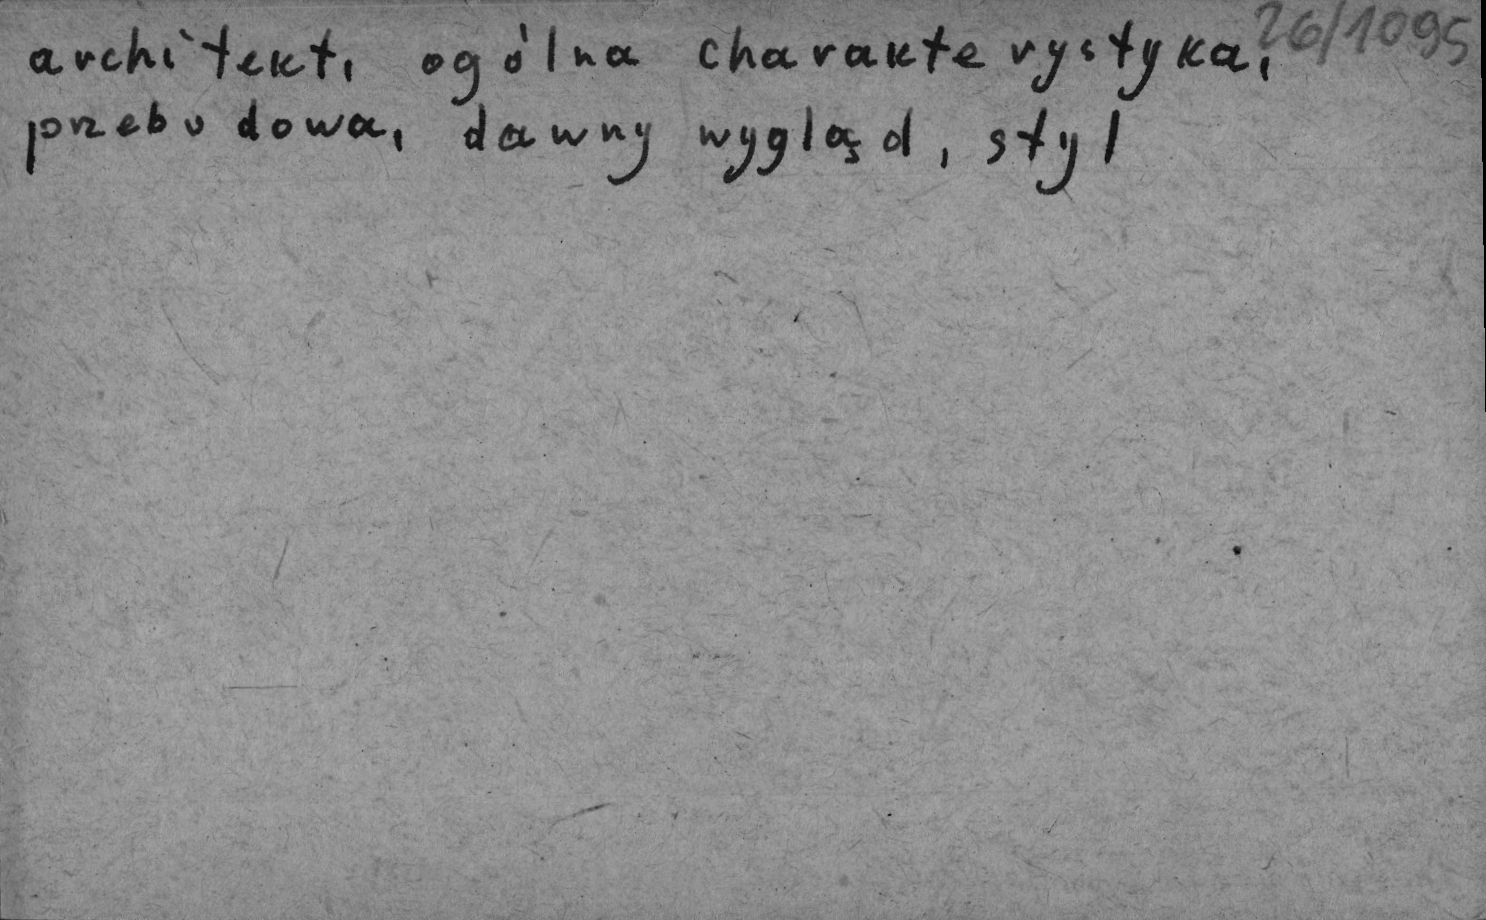 architekt, ogólna charakterystyka, 26/1095
przebudowa, dawny wygląd, styl